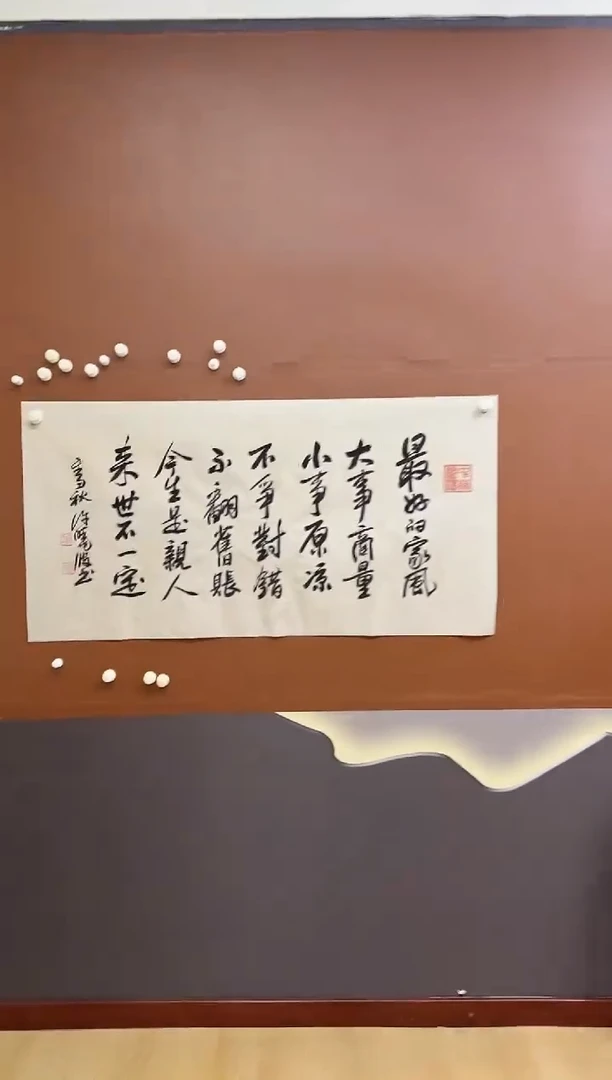 最好的家風
大事商量
小事原凉
不爭對錯
不翻舊賬
今生是親人
来世不一定